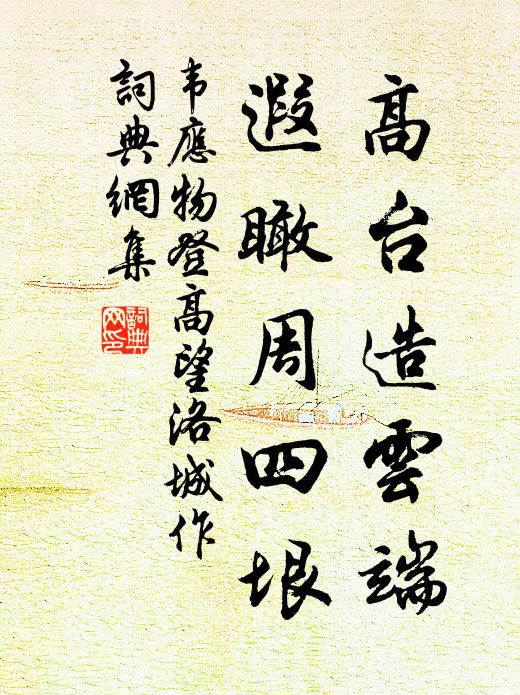 高台造雲端
遐瞰周四垠
韦應物登高望洛城作
詞典網集
詞典网印